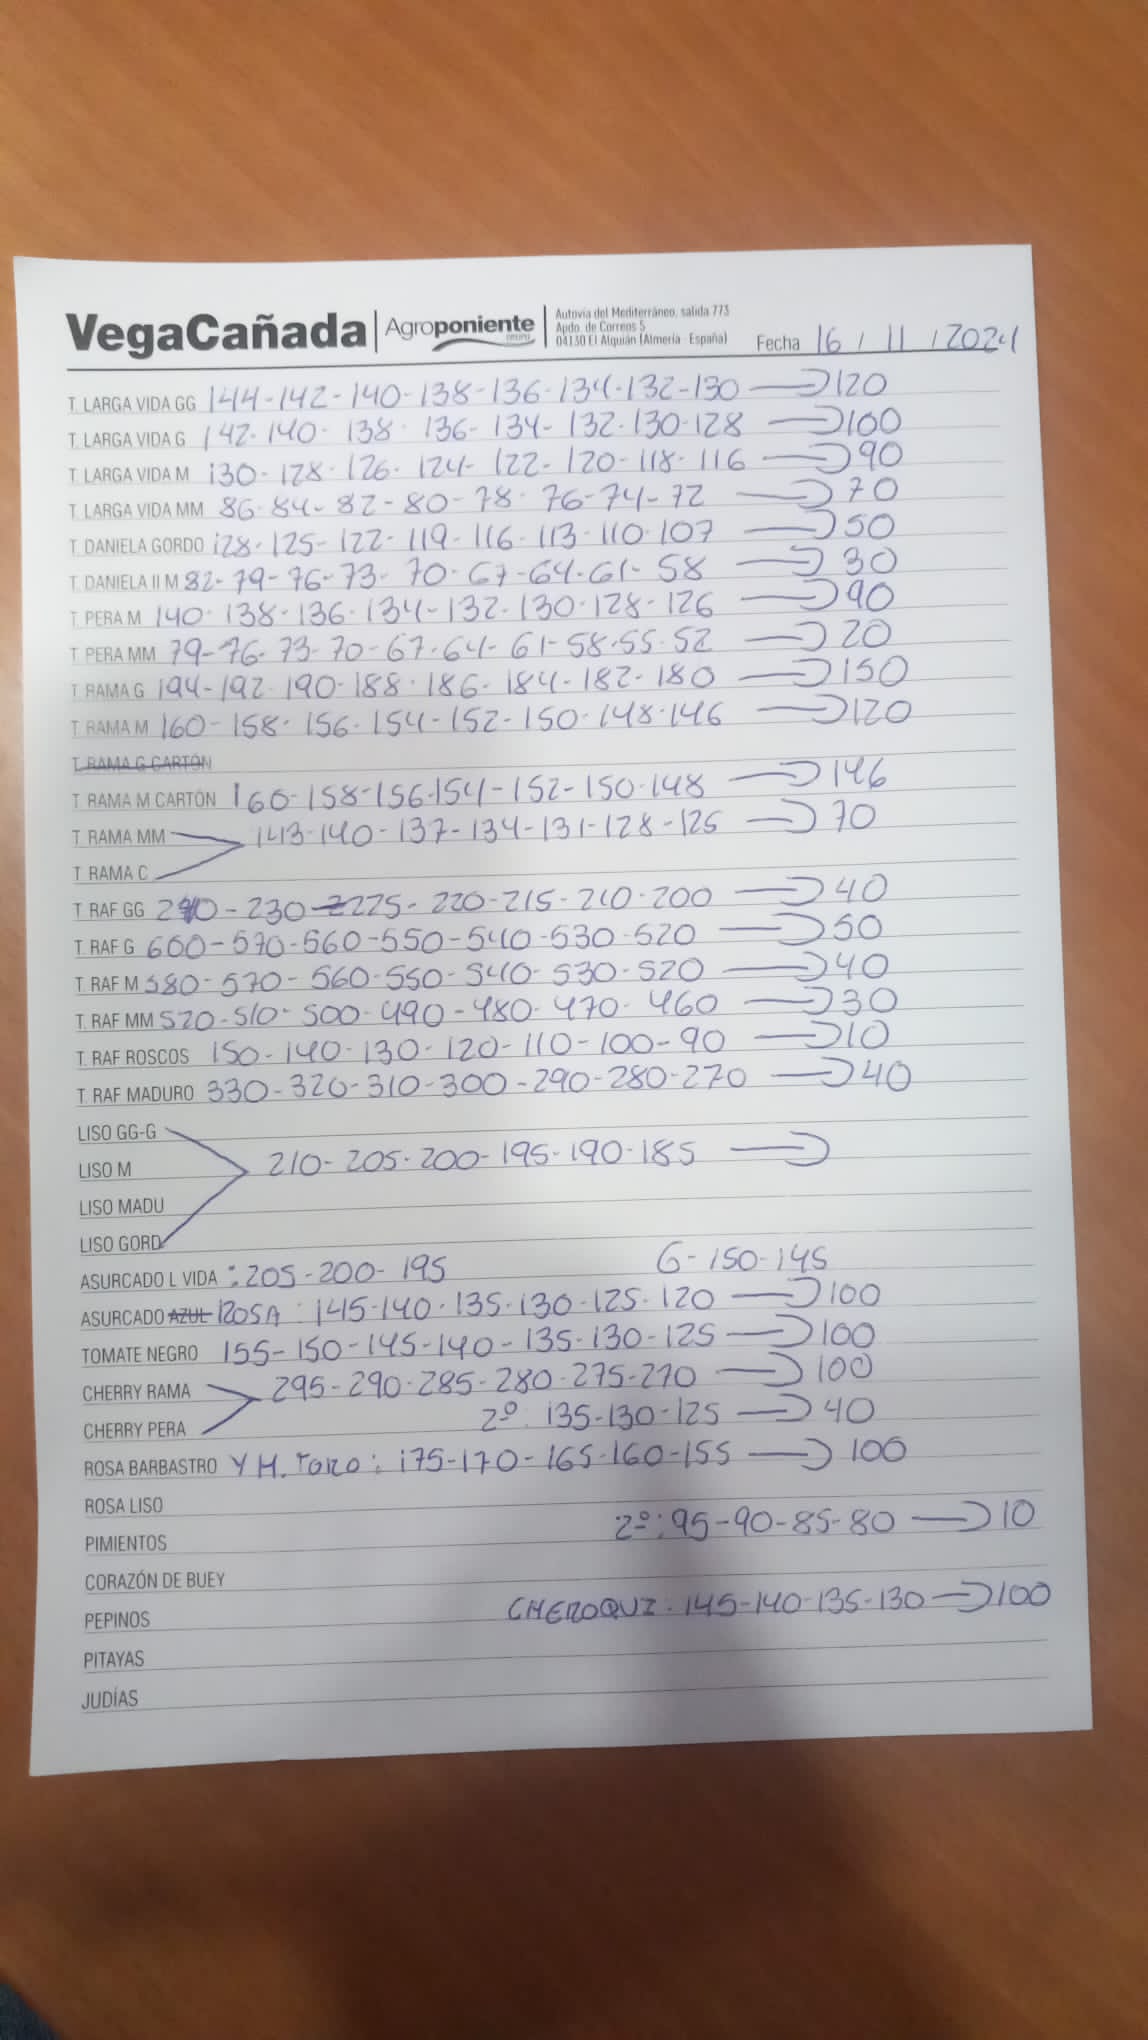 VegaCañada Agroponiente
Autovía del Mediterráneo, salida 773
Apdo. de Correos 5
04130 El Alquián (Almería - España)
Fecha 16 / 11 / 2024
T. LARGA VIDA GG 144-142-140-138-136-134-132-130 → 120
T. LARGA VIDA G 142-140-138-136-134-132-130-128 → 100
T. LARGA VIDA M 130-128-126-124-122-120-118-116 → 90
T. LARGA VIDA MM 86-84-82-80-78-76-74-72 → 70
T. DANIELA GORDO 128-125-122-119-116-113-110-107 → 50
T. DANIELA II M 82-79-76-73-70-67-64-61-58 → 30
T. PERA M 140-138-136-134-132-130-128-126 → 90
T. PERA MM 79-76-73-70-67-64-61-58-55-52 → 20
T. RAMA G 194-192-190-188-186-184-182-180 → 150
T. RAMA M 160-158-156-154-152-150-148-146 → 120
T. RAMA G CARTÓN
T. RAMA M CARTÓN 160-158-156-154-152-150-148 → 146
T. RAMA MM 143-140-137-134-131-128-125 → 70
T. RAMA C
T. RAF GG 240-230-225-220-215-210-200 → 40
T. RAF G 600-570-560-550-540-530-520 → 50
T. RAF M 580-570-560-550-540-530-520 → 40
T. RAF MM 520-510-500-490-480-470-460 → 30
T. RAF ROSCOS 150-140-130-120-110-100-90 → 10
T. RAF MADURO 330-320-310-300-290-280-270 → 40
LISO GG-G
LISO M 210-205-200-195-190-185 →
LISO MADU
LISO GORD
ASURCADO L VIDA : 205-200-195 G-150-145
ASURCADO AZUL ROSA : 145-140-135-130-125-120 → 100
TOMATE NEGRO 155-150-145-140-135-130-125 → 100
CHERRY RAMA 295-290-285-280-275-270 → 100
CHERRY PERA 2º: 135-130-125 → 40
ROSA BARBASTRO Y M. TORO: 175-170-165-160-155 → 100
ROSA LISO
PIMIENTOS 2º: 95-90-85-80 → 10
CORAZÓN DE BUEY
PEPINOS CHEROQUI: 145-140-135-130 → 100
PITAYAS
JUDÍAS